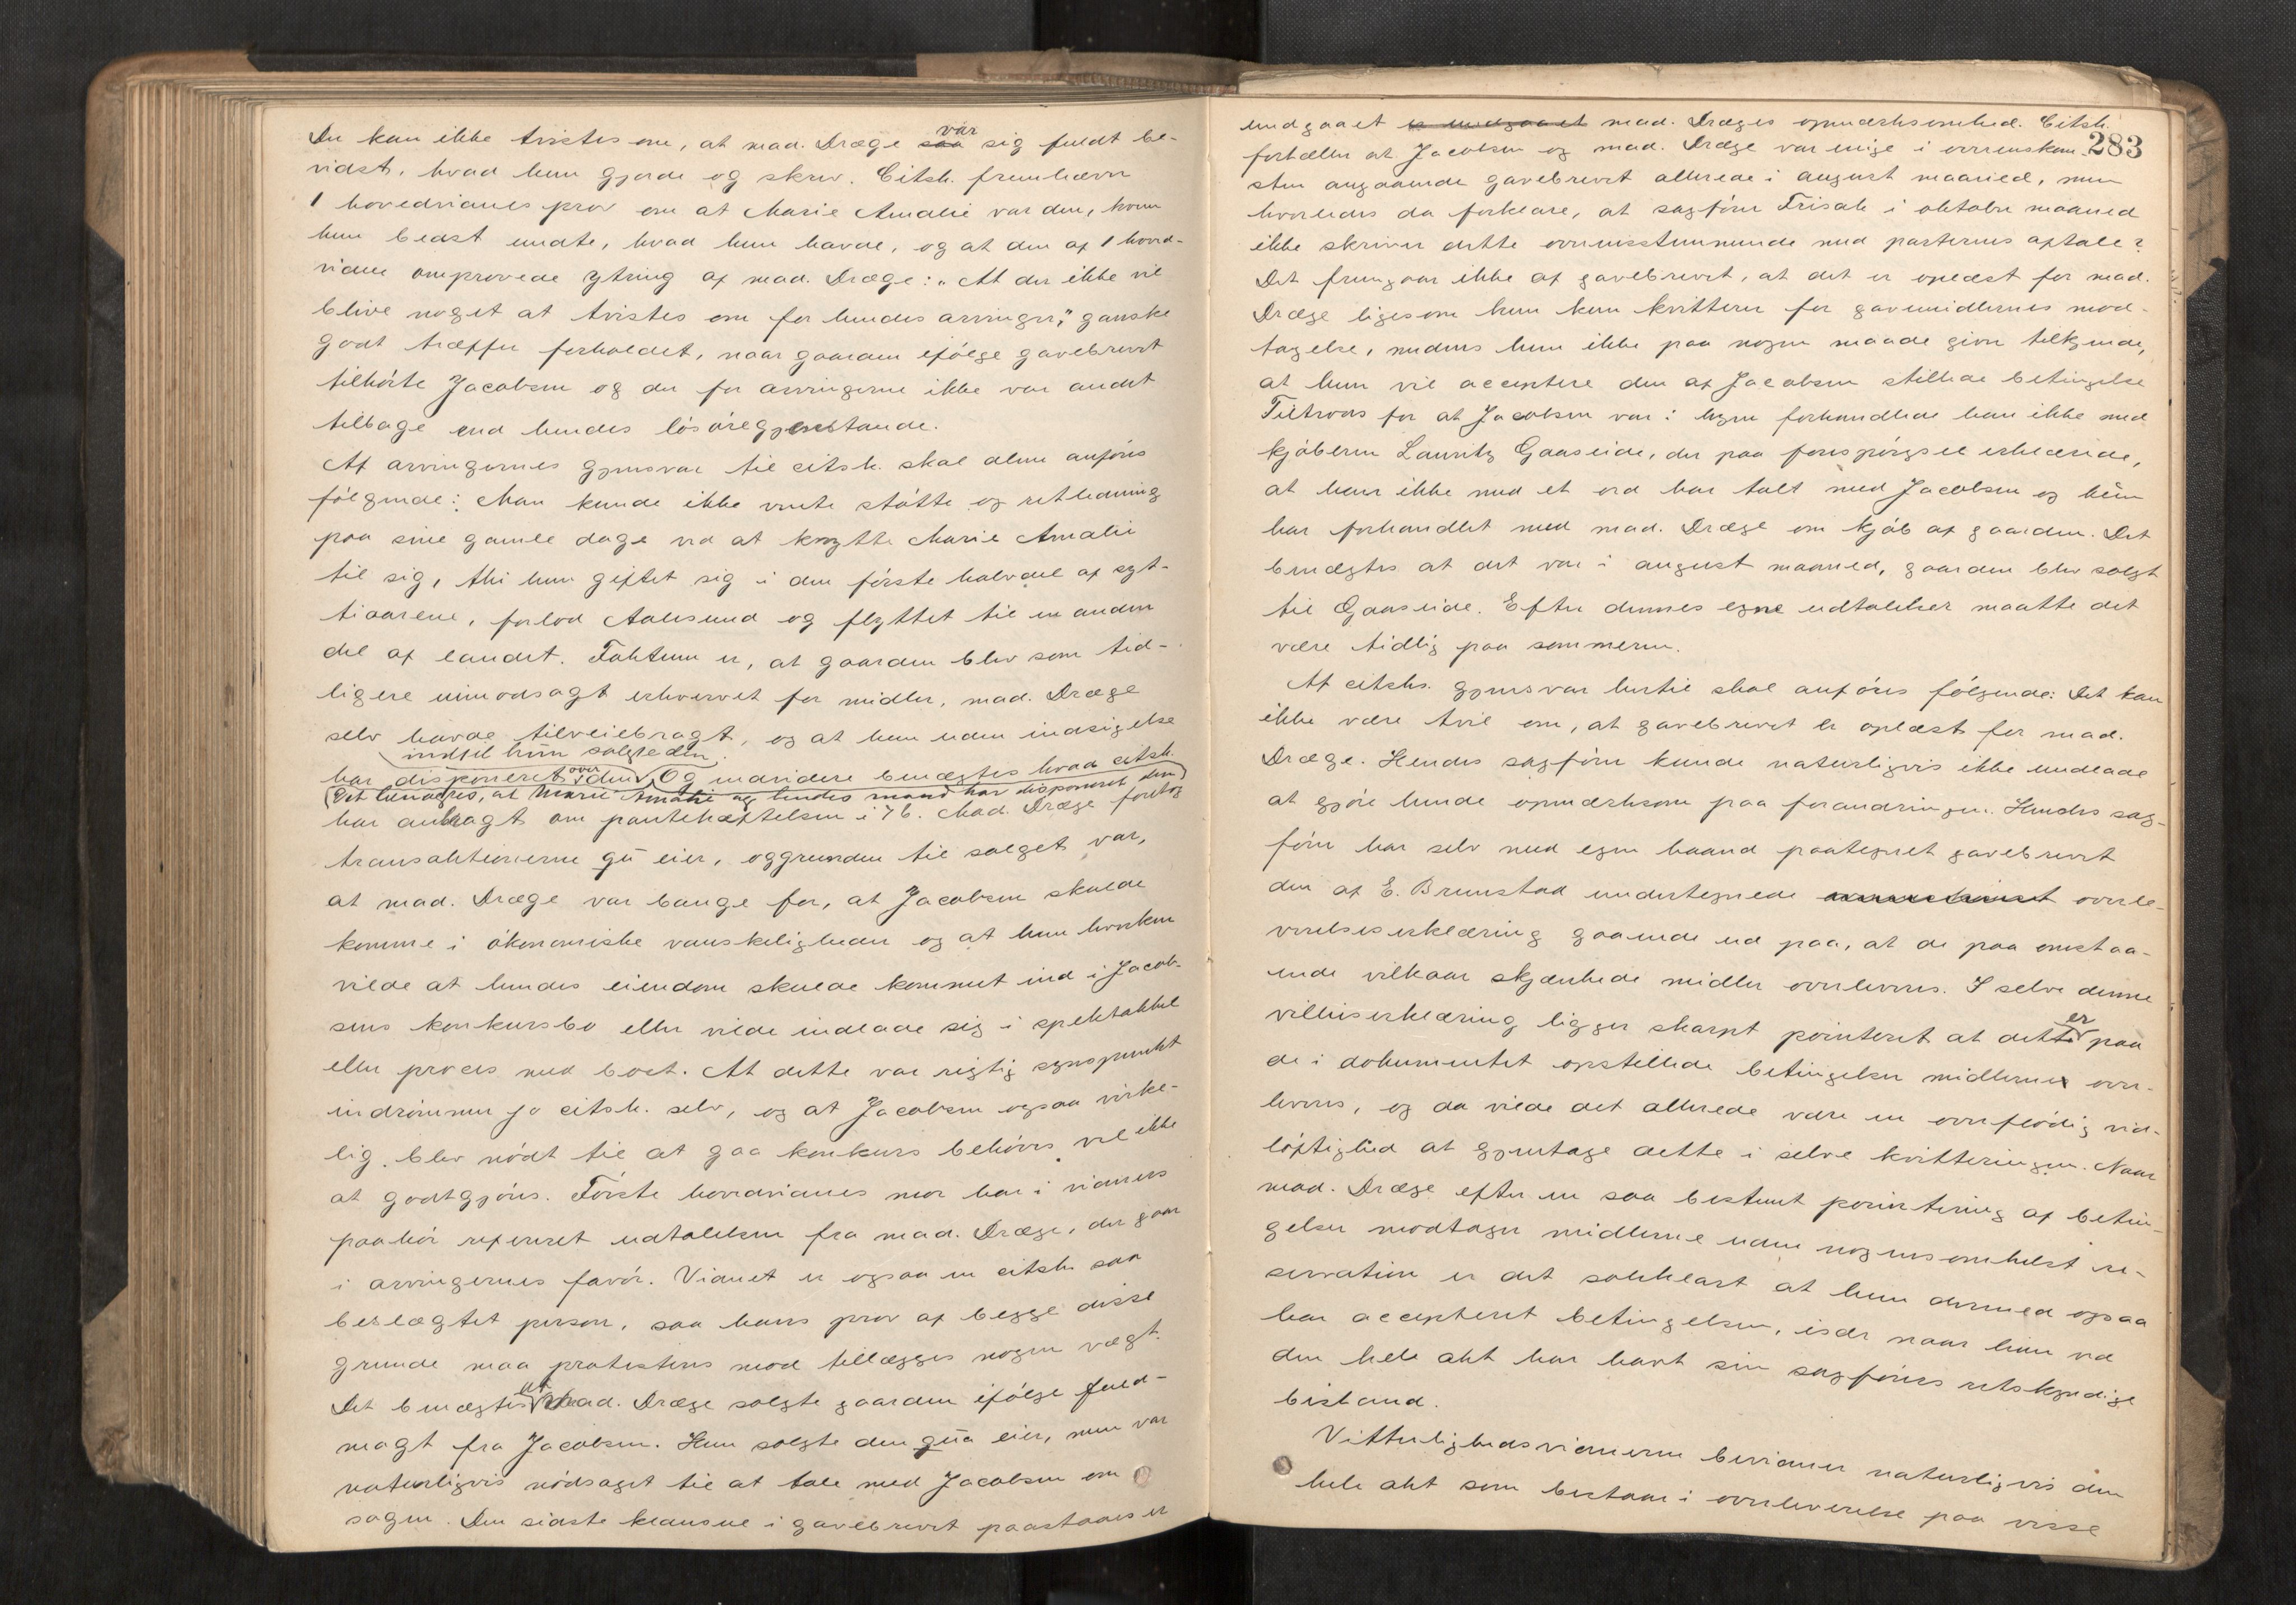 Der kan ikke tvistes om, at mad. Dræge var sig fuldt be-
vidst, hvad hun gjorde og skrev. Citsk. fremhæver
1 hovedvidnes prov om at Marie Amalie var den, hvem
hun bedst undte, hvad hun havde, og at den af 1 hoved-
vidne omprovede ytring af mad. Dræge: "At der ikke vil
blive noget at tvistes om for hendes arvinger," ganske
godt træffer forholdet, naar gaarden ifølge gavebrevet
tilhørte Jacobsen og der for arvingerne ikke var andet
tilbage end hendes løsøregjenstande.
Af arvingernes gjensvar til citsk. skal alene anføres
følgende: Man kunde ikke vente støtte og retledning
paa sine gamle dage ved at knytte Marie Amalie
til sig, thi hun giftet sig i den første halvdel af syt-
tiaarene, forlod Aalesund og flyttet til en anden
del af landet. Faktum er, at gaarden blev som tid-
ligere uimodsagt erhvervet for midler, mad. Dræge
selv havde tilveiebragt, og at hun uden indsigelse
indtil hun solgte den.
har disponeret over den. Og endvidere benægtes hvad citsk.
(Det benægtes, at Marie Amalie og hendes mand har disponeret den)
har anbragt om pantehæftelsen i 76. Mad. Dræge foretog
transaktionerne qu eier, og grunden til salget var,
at mad. Dræge var bange for, at Jacobsen skulde
komme i økonomiske vanskeligheder og at hun hverken
vilde at hendes eiendom skulde kommet ind i Jacob-
sens konkursbo eller vilde indlade sig i spektakkel
eller proces med boet. At dette var rigtig synspunkt
indrømmer jo citsk. selv, og at Jacobsen ogsaa virke-
lig blev nødt til at gaa konkurs behøves vel ikke
at godtgjøres. Første hovedvidnes mor har i vidnets
paahør referert udtalelsen fra mad. Dræge, der gaar
i arvingernes favør. Vidnet er ogsaa en citsk. saa
beslægtet person, saa hans prov af begge disse
grunde maa protesteres mod tillægges nogen vægt.
Det benægtes at mad. Dræge solgte gaarden ifølge fuld-
magt fra Jacobsen. Hun solgte den qua eier, men var
naturligvis nødsaget til at tale med Jacobsen om
sagen. Den sidste klausul i gavebrevet paastaaes er
283
undgaaet er undgaaet mad. Dræges opmærksomhed. Citsk.
fortæller at Jacobsen og mad. Dræge var enige i overenskom-
sten angaaende gavebrevet allerede i august maaned, men
hvorledes da forklare, at sagfører Frisak i oktober maaned
ikke skriver dette overensstemmende med parternes aftale?
Det fremgaar ikke af gavebrevet, at det er oplæst for mad.
Dræge ligesom hun kun kvitterer for gavemidlernes mod-
tagelse, medens hun ikke paa nogen maade giver tilkjende,
at hun vil acceptere den af Jacobsen stillede betingelse
Tiltrods for at Jacobsen var i byen forhandlede han ikke med
kjøberen Lauritz Gaaseide, der paa forespørgsel erklærede,
at han ikke med et ord har talt med Jacobsen og kun
har forhandlet med mad. Dræge om kjøb af gaarden. Det
benægtes at det var i august maaned, gaarden blev solgt
til Gaaseide. Efter dennes egne udtalelser maatte det
være tidlig paa sommeren.
Af citsks. gjensvar hertil skal anføres følgende: Det kan
ikke være tvil om, at gavebrevet er oplæst for mad.
Dræge. Hendes sagfører kunde naturligvis ikke undlade
at gjøre hende opmærksom paa forandringen. Hendes sag-
fører har selv med egen haand paategnet gavebrevet
den af E. Brunstad undertegnede overle-
verelseserklæring gaaende ud paa, at de paa omstaa-
ende vilkaar skjænkede midler overleveres. I selve denne
villieserklæring ligger skarpt pointeret at det er paa
de i dokumentet opstillede betingelser midlerne over-
leveres, og da vilde det allerede være en overflødig vid-
løftighed at gjentage dette i selve kvitteringen. Naar
mad. Dræge efter en saa bestemt pointering af betin-
gelser modtager midlerne uden nogensomhelst re-
servation er det soleklart at hun dermed ogsaa
har accepteret betingelsen, især naar hun ved
den hele akt har havt sin sagførers retskyndige
bistand.
Vitterlighedsvidnerne bevidner naturligvis den
hele akt som bestaar i overleverelse paa visse